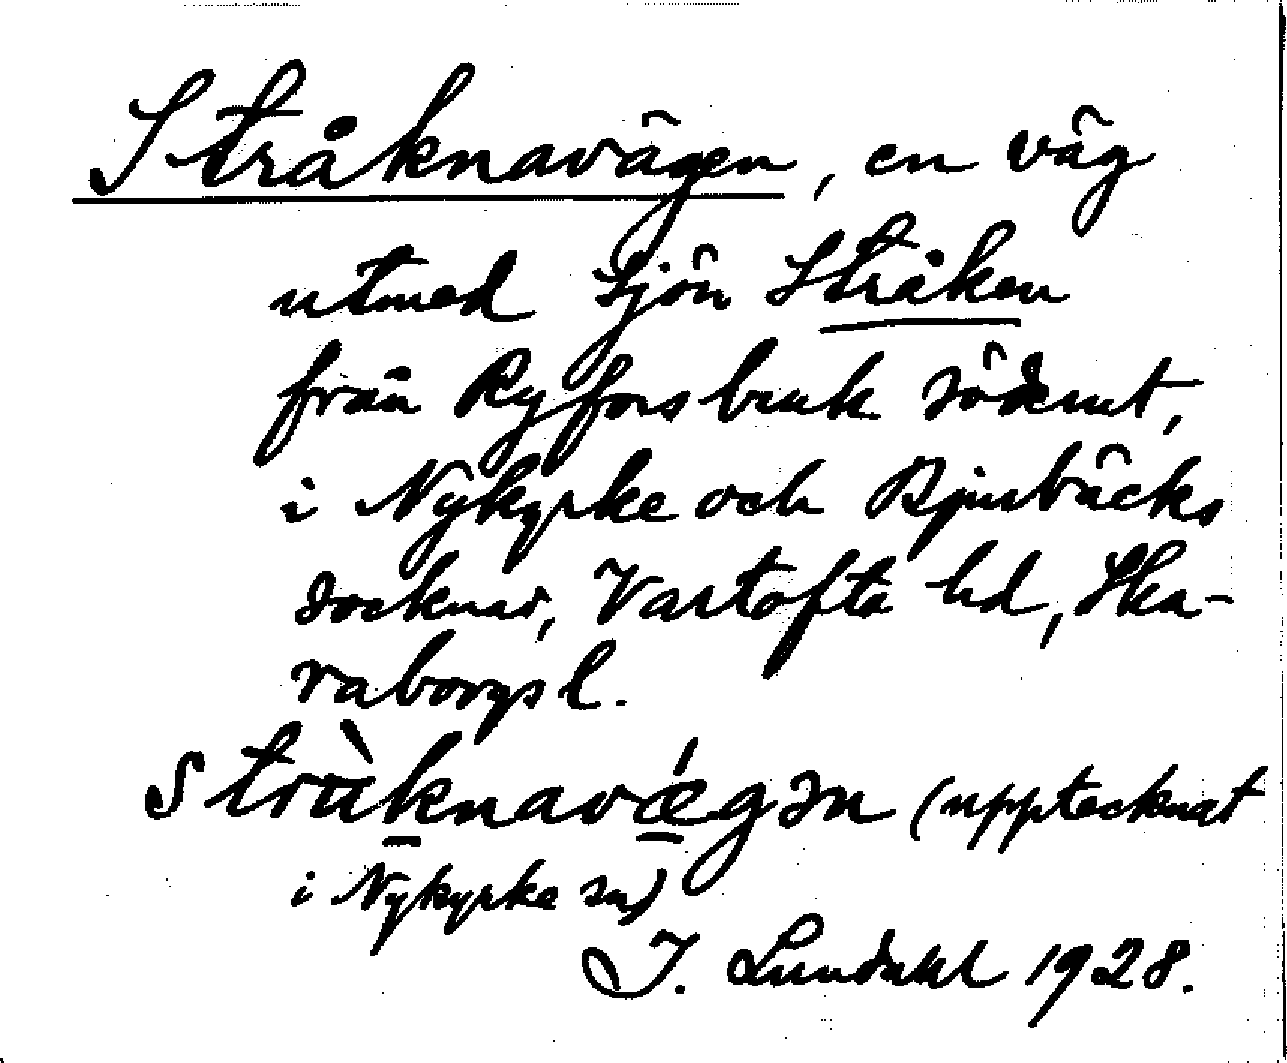 Stråknavägen, en väg
utmed sjön Stråken
från Ryfors bruk söderut,
i Nykyrke och Bjurbäcks
socknar, Vartofta hd, Ska-
raborgs l.
stràknavǽgən (upptecknat
i Nykyrke sn)
I. Lundahl 1928.